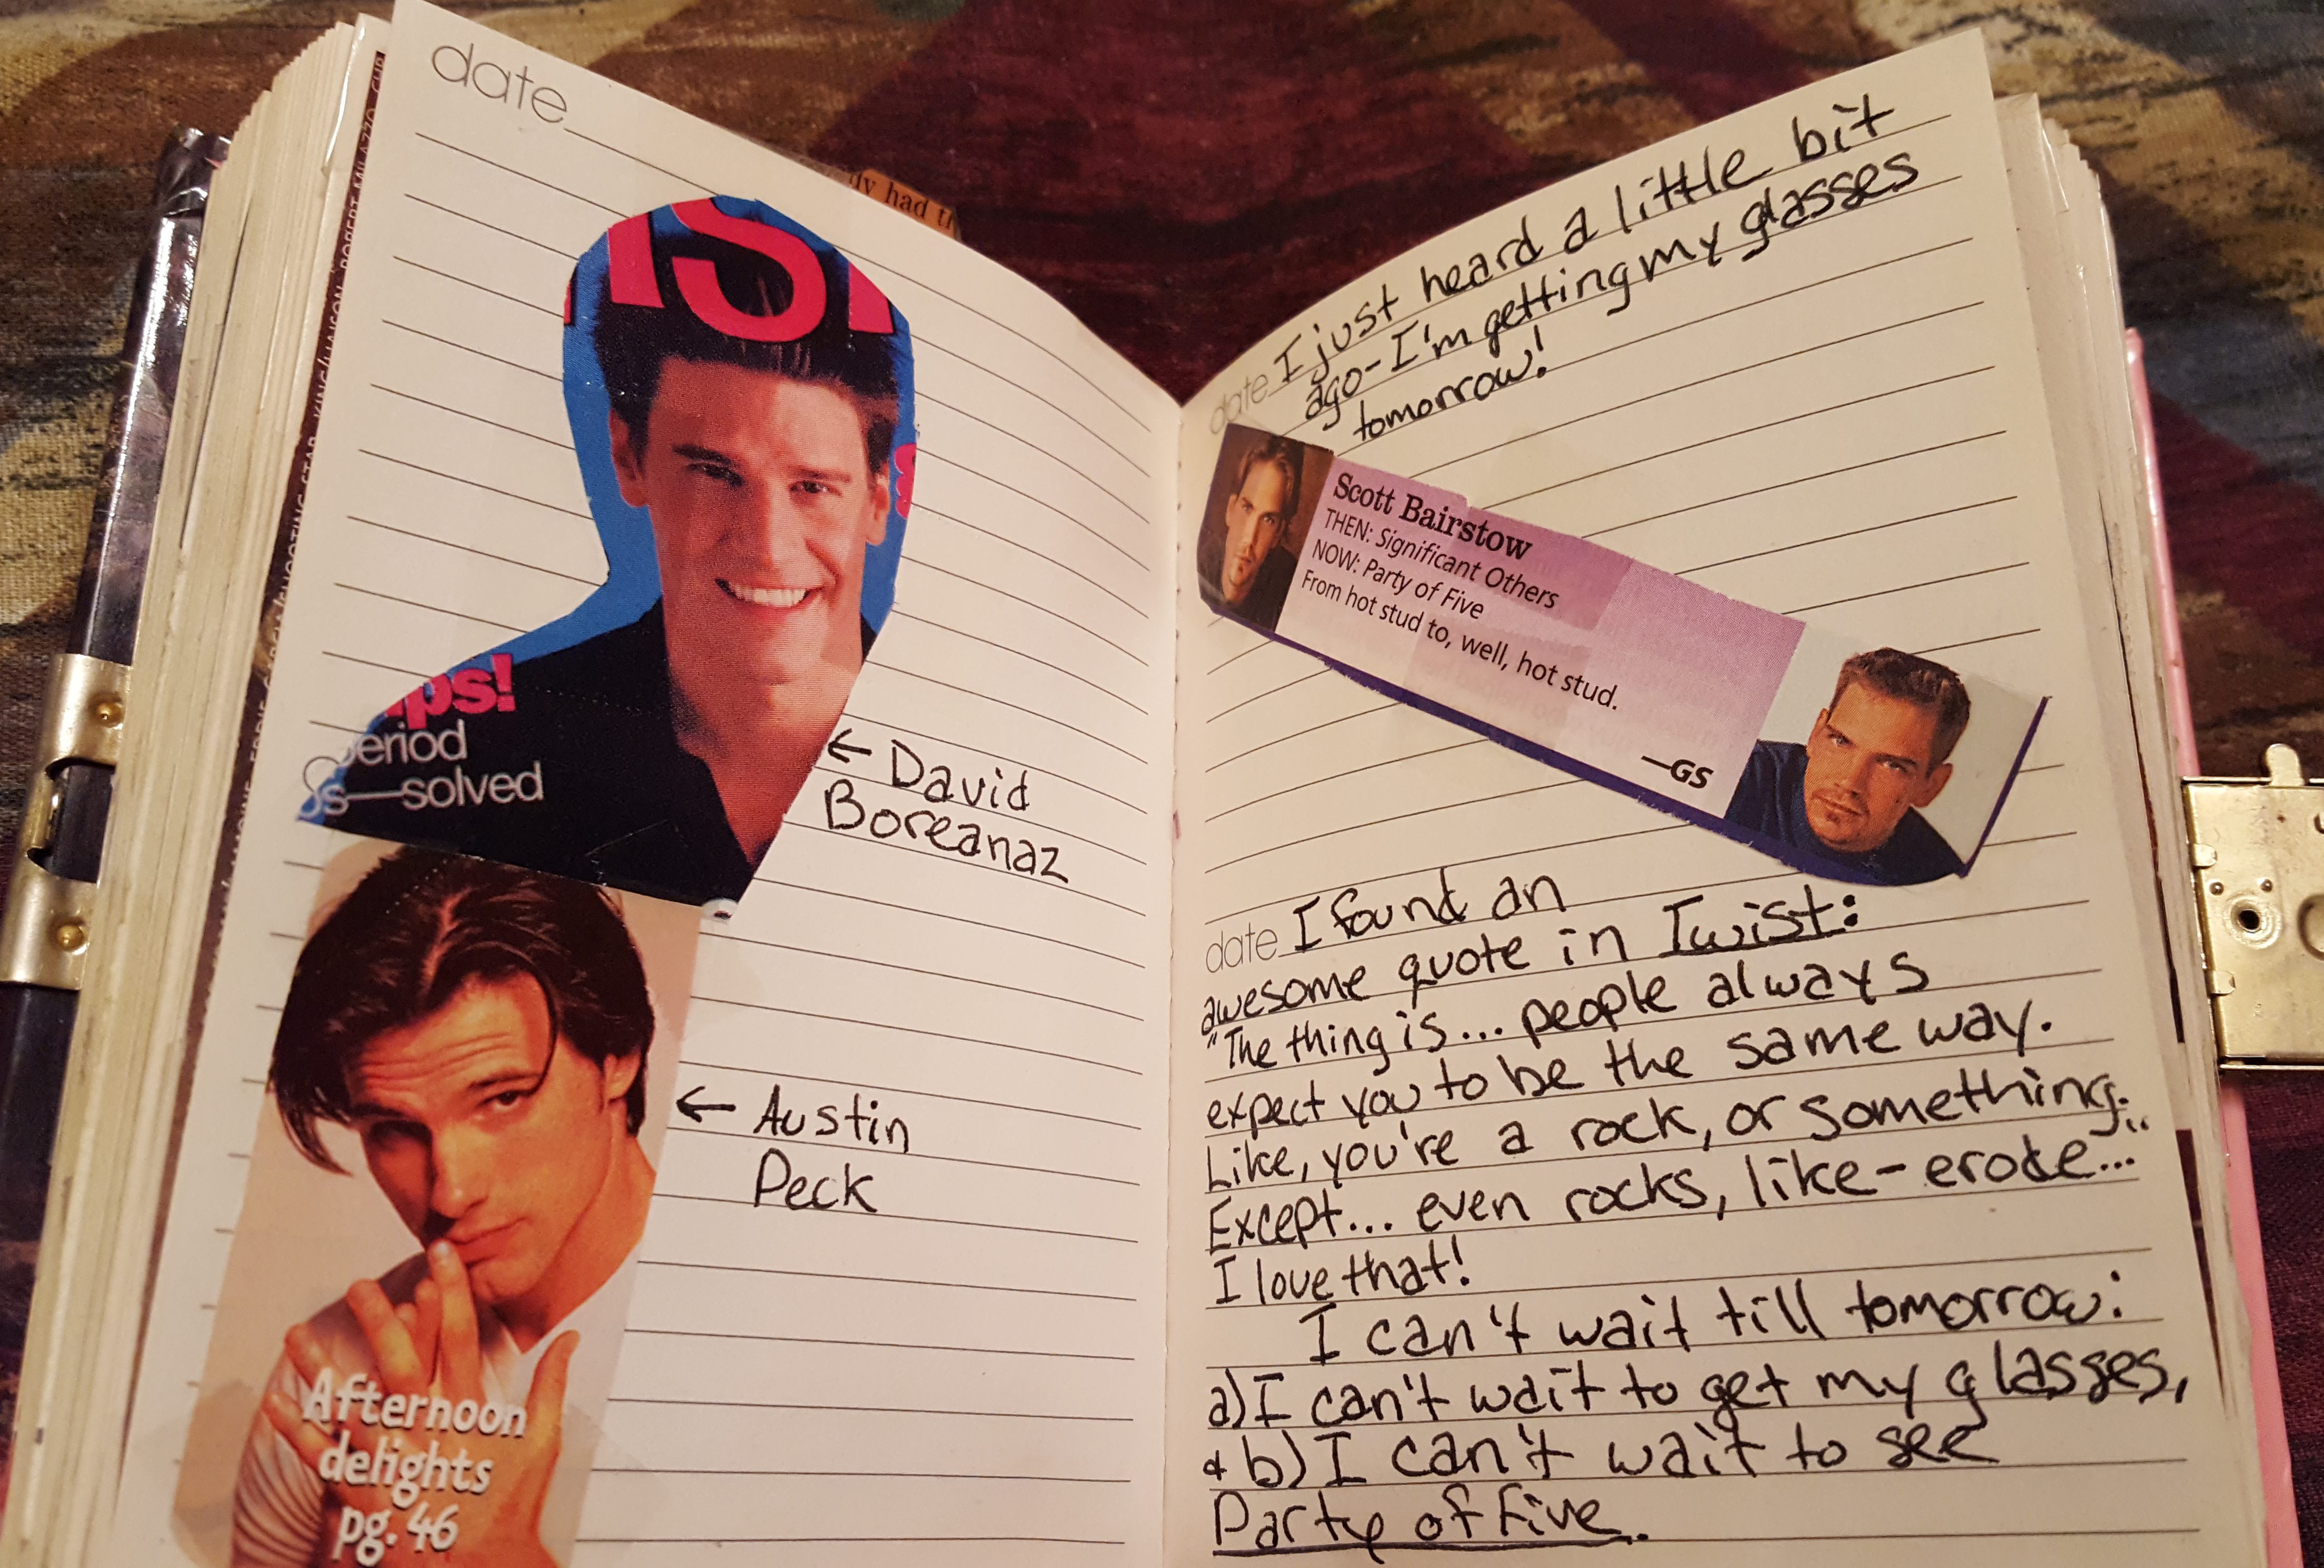 date
dy had th
IST
ps!
period
s—solved
← David
Boreanaz
← Austin
Peck
Afternoon
delights
pg. 46
date I just heard a little bit
ago-I'm getting my glasses
tomorrow!
Scott Bairstow
THEN: Significant Others
NOW: Party of Five
From hot stud to, well, hot stud.
—GS
date I found an
awesome quote in Twist:
"The thing is... people always
expect you to be the same way.
Like, you're a rock, or something.
Except... even rocks, like-erode..."
I love that!
I can't wait till tomorrow:
a) I can't wait to get my glasses,
& b) I can't wait to see
Party of Five.